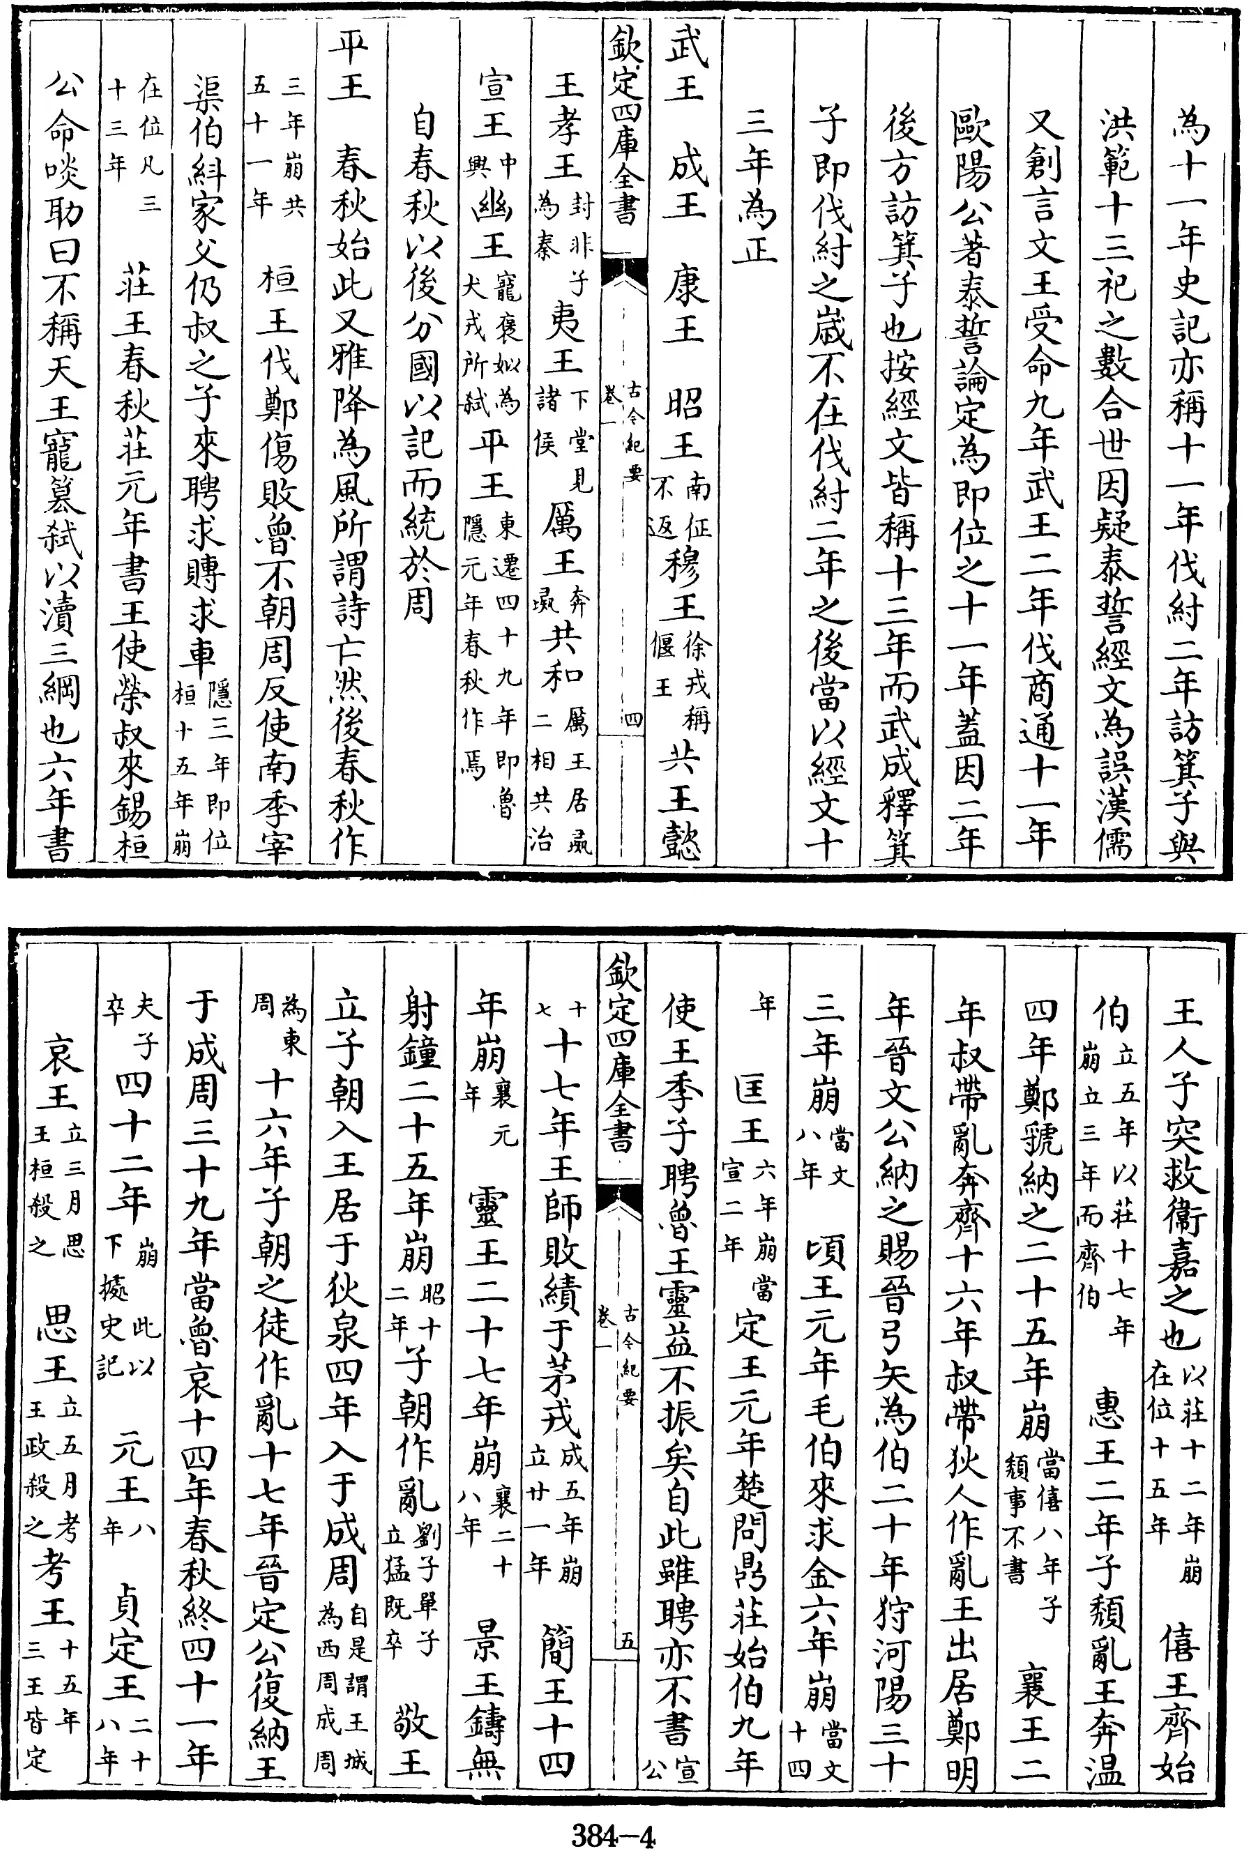 為十一年史記亦稱十一年伐紂二年訪箕子與
洪範十三祀之數合世因疑泰誓經文為誤漢儒
又創言文王受命九年武王二年伐商通十一年
歐陽公著泰誓論定為即位之十一年蓋因二年
後方訪箕子也按經文皆稱十三年而武成釋箕
子即伐紂之嵗不在伐紂二年之後當以經文十
三年為正
武王 成王 康王 昭王南征不返穆王徐戎稱偃王共王懿
欽定四庫全書 古今紀要 卷一 四
王孝王封非子為秦夷王下堂見諸侯厲王奔彘共和厲王居彘二相共治
宣王中興幽王寵褒姒為犬戎所弑平王東遷四十九年即魯隱元年春秋作焉
自春秋以後分國以記而統於周
平王 春秋始此又雅降為風所謂詩亡然後春秋作
三年崩共五十一年 桓王伐鄭傷敗魯不朝周反使南季宰
渠伯糾家父仍叔之子來聘求賻求車隱三年即位桓十五年崩
在位凡三十三年 莊王春秋莊元年書王使榮叔來錫桓
公命啖助曰不稱天王寵簒弑以瀆三綱也六年書
王人子突救衞嘉之也以莊十二年崩在位十五年 僖王齊始
伯立五年以莊十七年崩立三年而齊伯 惠王二年子頽亂王奔温
四年鄭虢納之二十五年崩當僖八年子頽事不書 襄王二
年叔帶亂奔齊十六年叔帶狄人作亂王出居鄭明
年晉文公納之賜晉弓矢為伯二十年狩河陽三十
三年崩當文八年 頃王元年毛伯來求金六年崩當文十四
年 匡王六年崩當宣二年定王元年楚問鼎莊始伯九年
使王季子聘魯王靈益不振矣自此雖聘亦不書宣公
欽定四庫全書 古今紀要 卷一 五
十七十七年王師敗績于茅戎成五年崩立廿一年 簡王十四
年崩襄元年 靈王二十七年崩襄二十八年 景王鑄無
射鐘二十五年崩昭十二年子朝作亂劉子單子立猛既卒 敬王
立子朝入王居于狄泉四年入于成周自是謂王城為西周成周
為東周十六年子朝之徒作亂十七年晉定公復納王
于成周三十九年當魯哀十四年春秋終四十一年
夫子卒四十二年崩此以下㨿史記 元王八年 貞定王二十八年
哀王立三月思王桓殺之 思王立五月考王政殺之考王十五年三王皆定
384-4